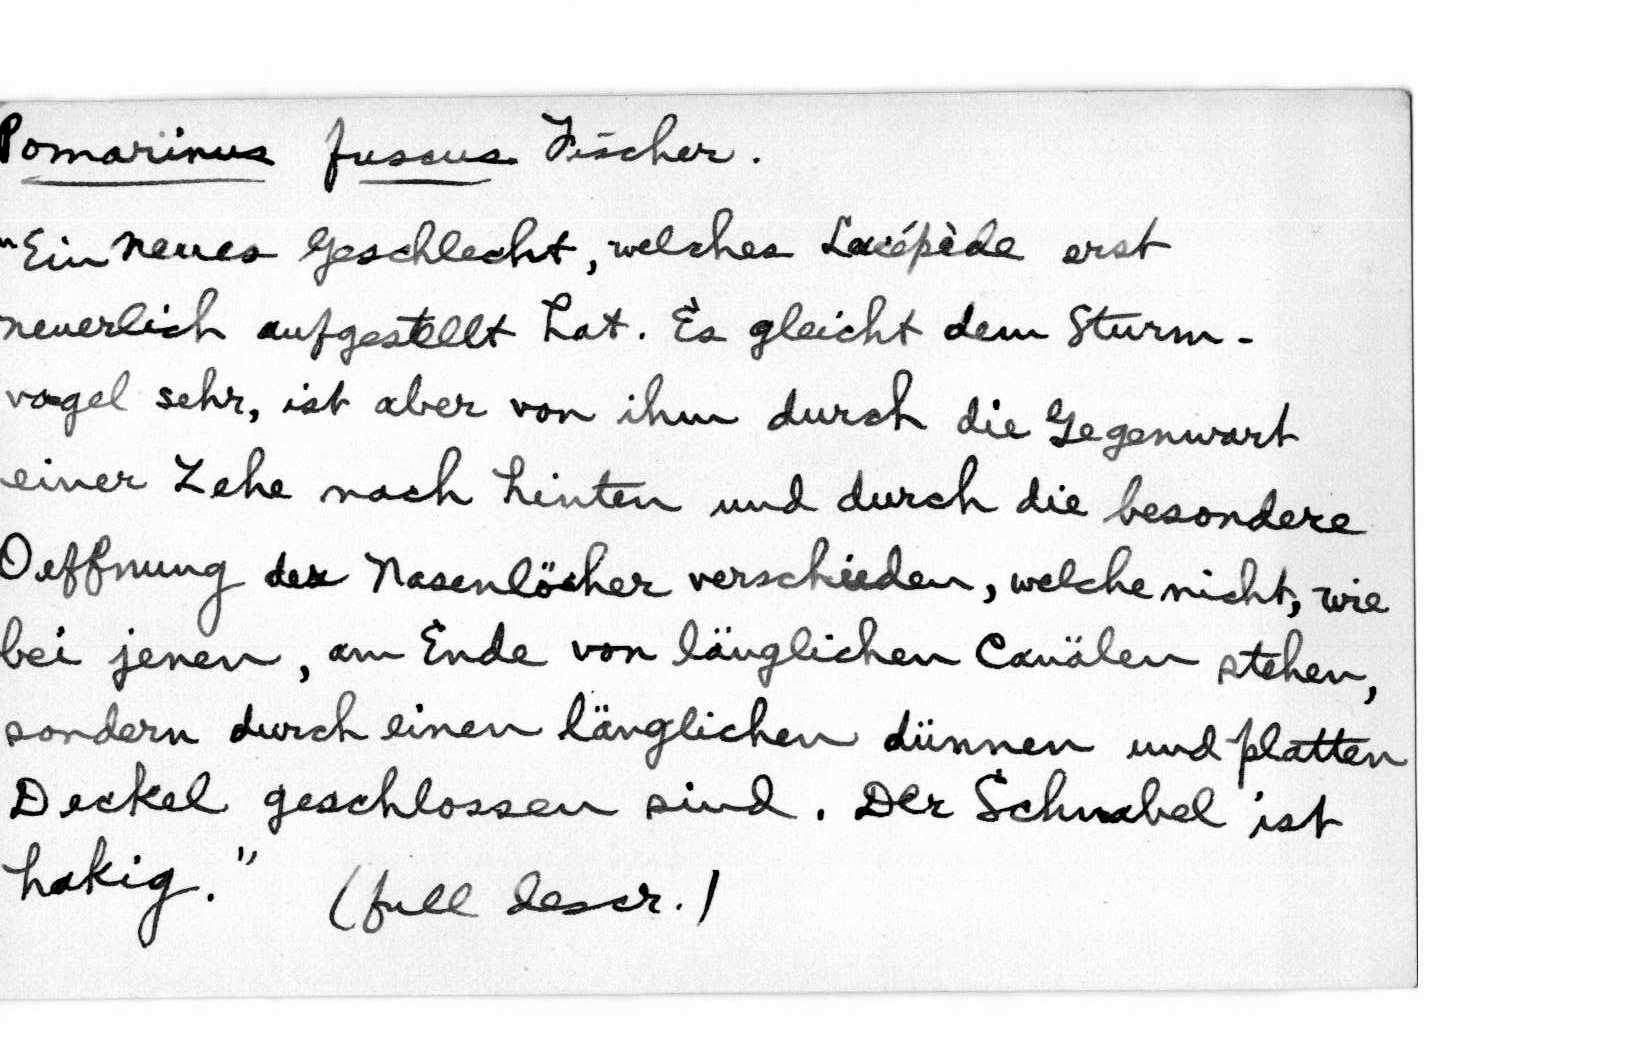 Pomarinus fuscus Fischer.
"Ein neues Geschlecht, welches Lacépède erst
neuerlich aufgestellt hat. Es gleicht dem Sturm-
vogel sehr, ist aber von ihm durch die Gegenwart
einer Zehe nach hinten und durch die besondere
Oeffnung der Nasenlöcher verschieden, welche nicht, wie
bei jenen, am Ende von länglichen Canälen stehen,
sondern durch einen länglichen dünnen und platten
Deckel geschlossen sind. Der Schnabel ist
hakig." (full descr.)